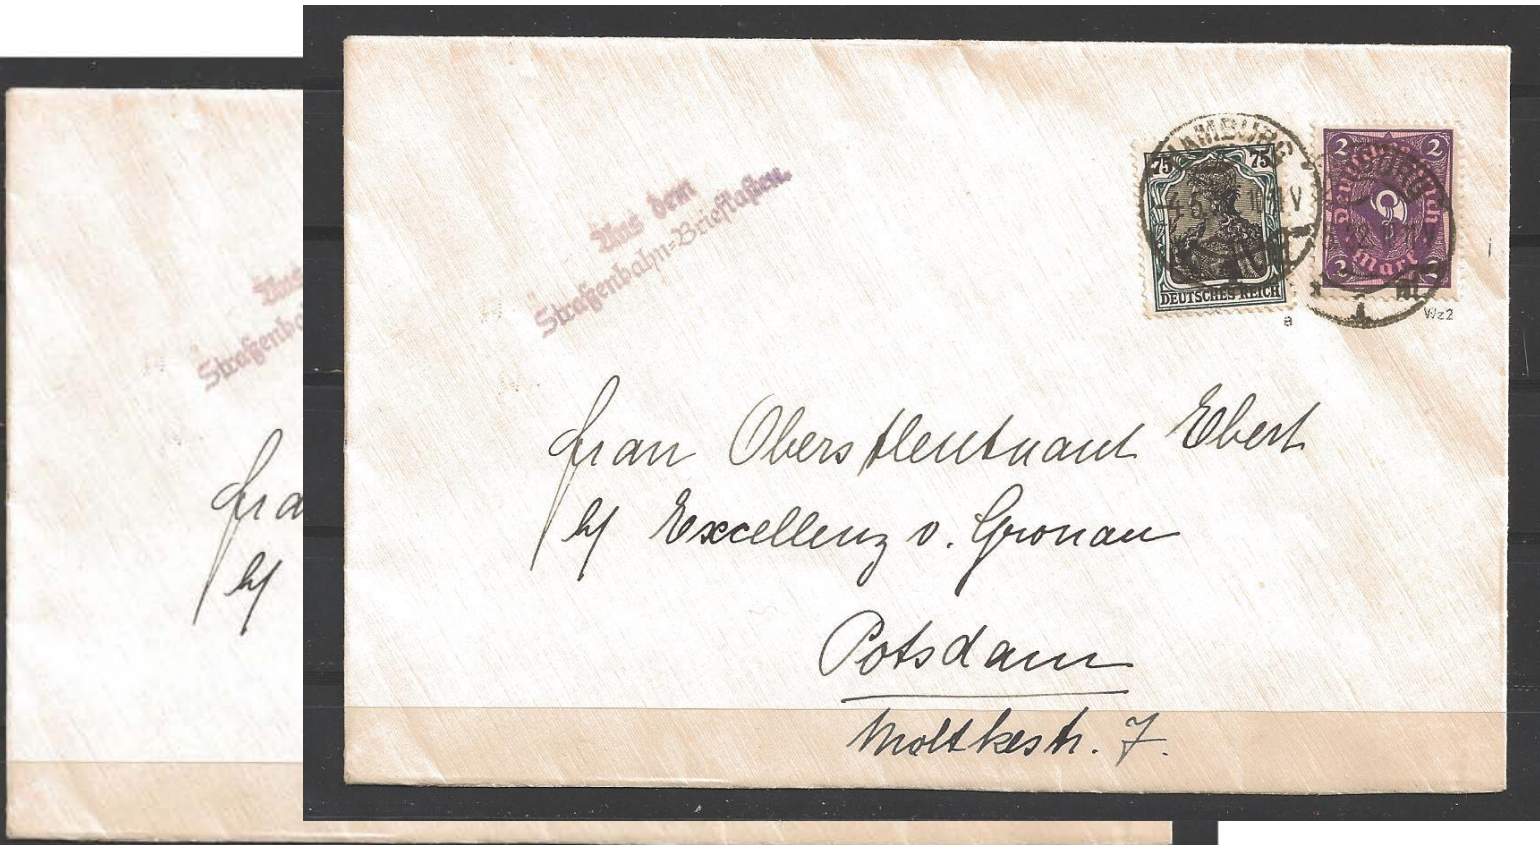 Aus dem
Straßenbahn-Briefkasten.
HAMBURG
75 75
DEUTSCHES REICH
2 2
Deutsches Reich
2 2
Mark
a
Wz2
Frau Oberstleutnant Ebert
b/ Excellenz v. Gronau
Potsdam
Moltkestr. 7.
Aus
Straßenba
Fra
b/